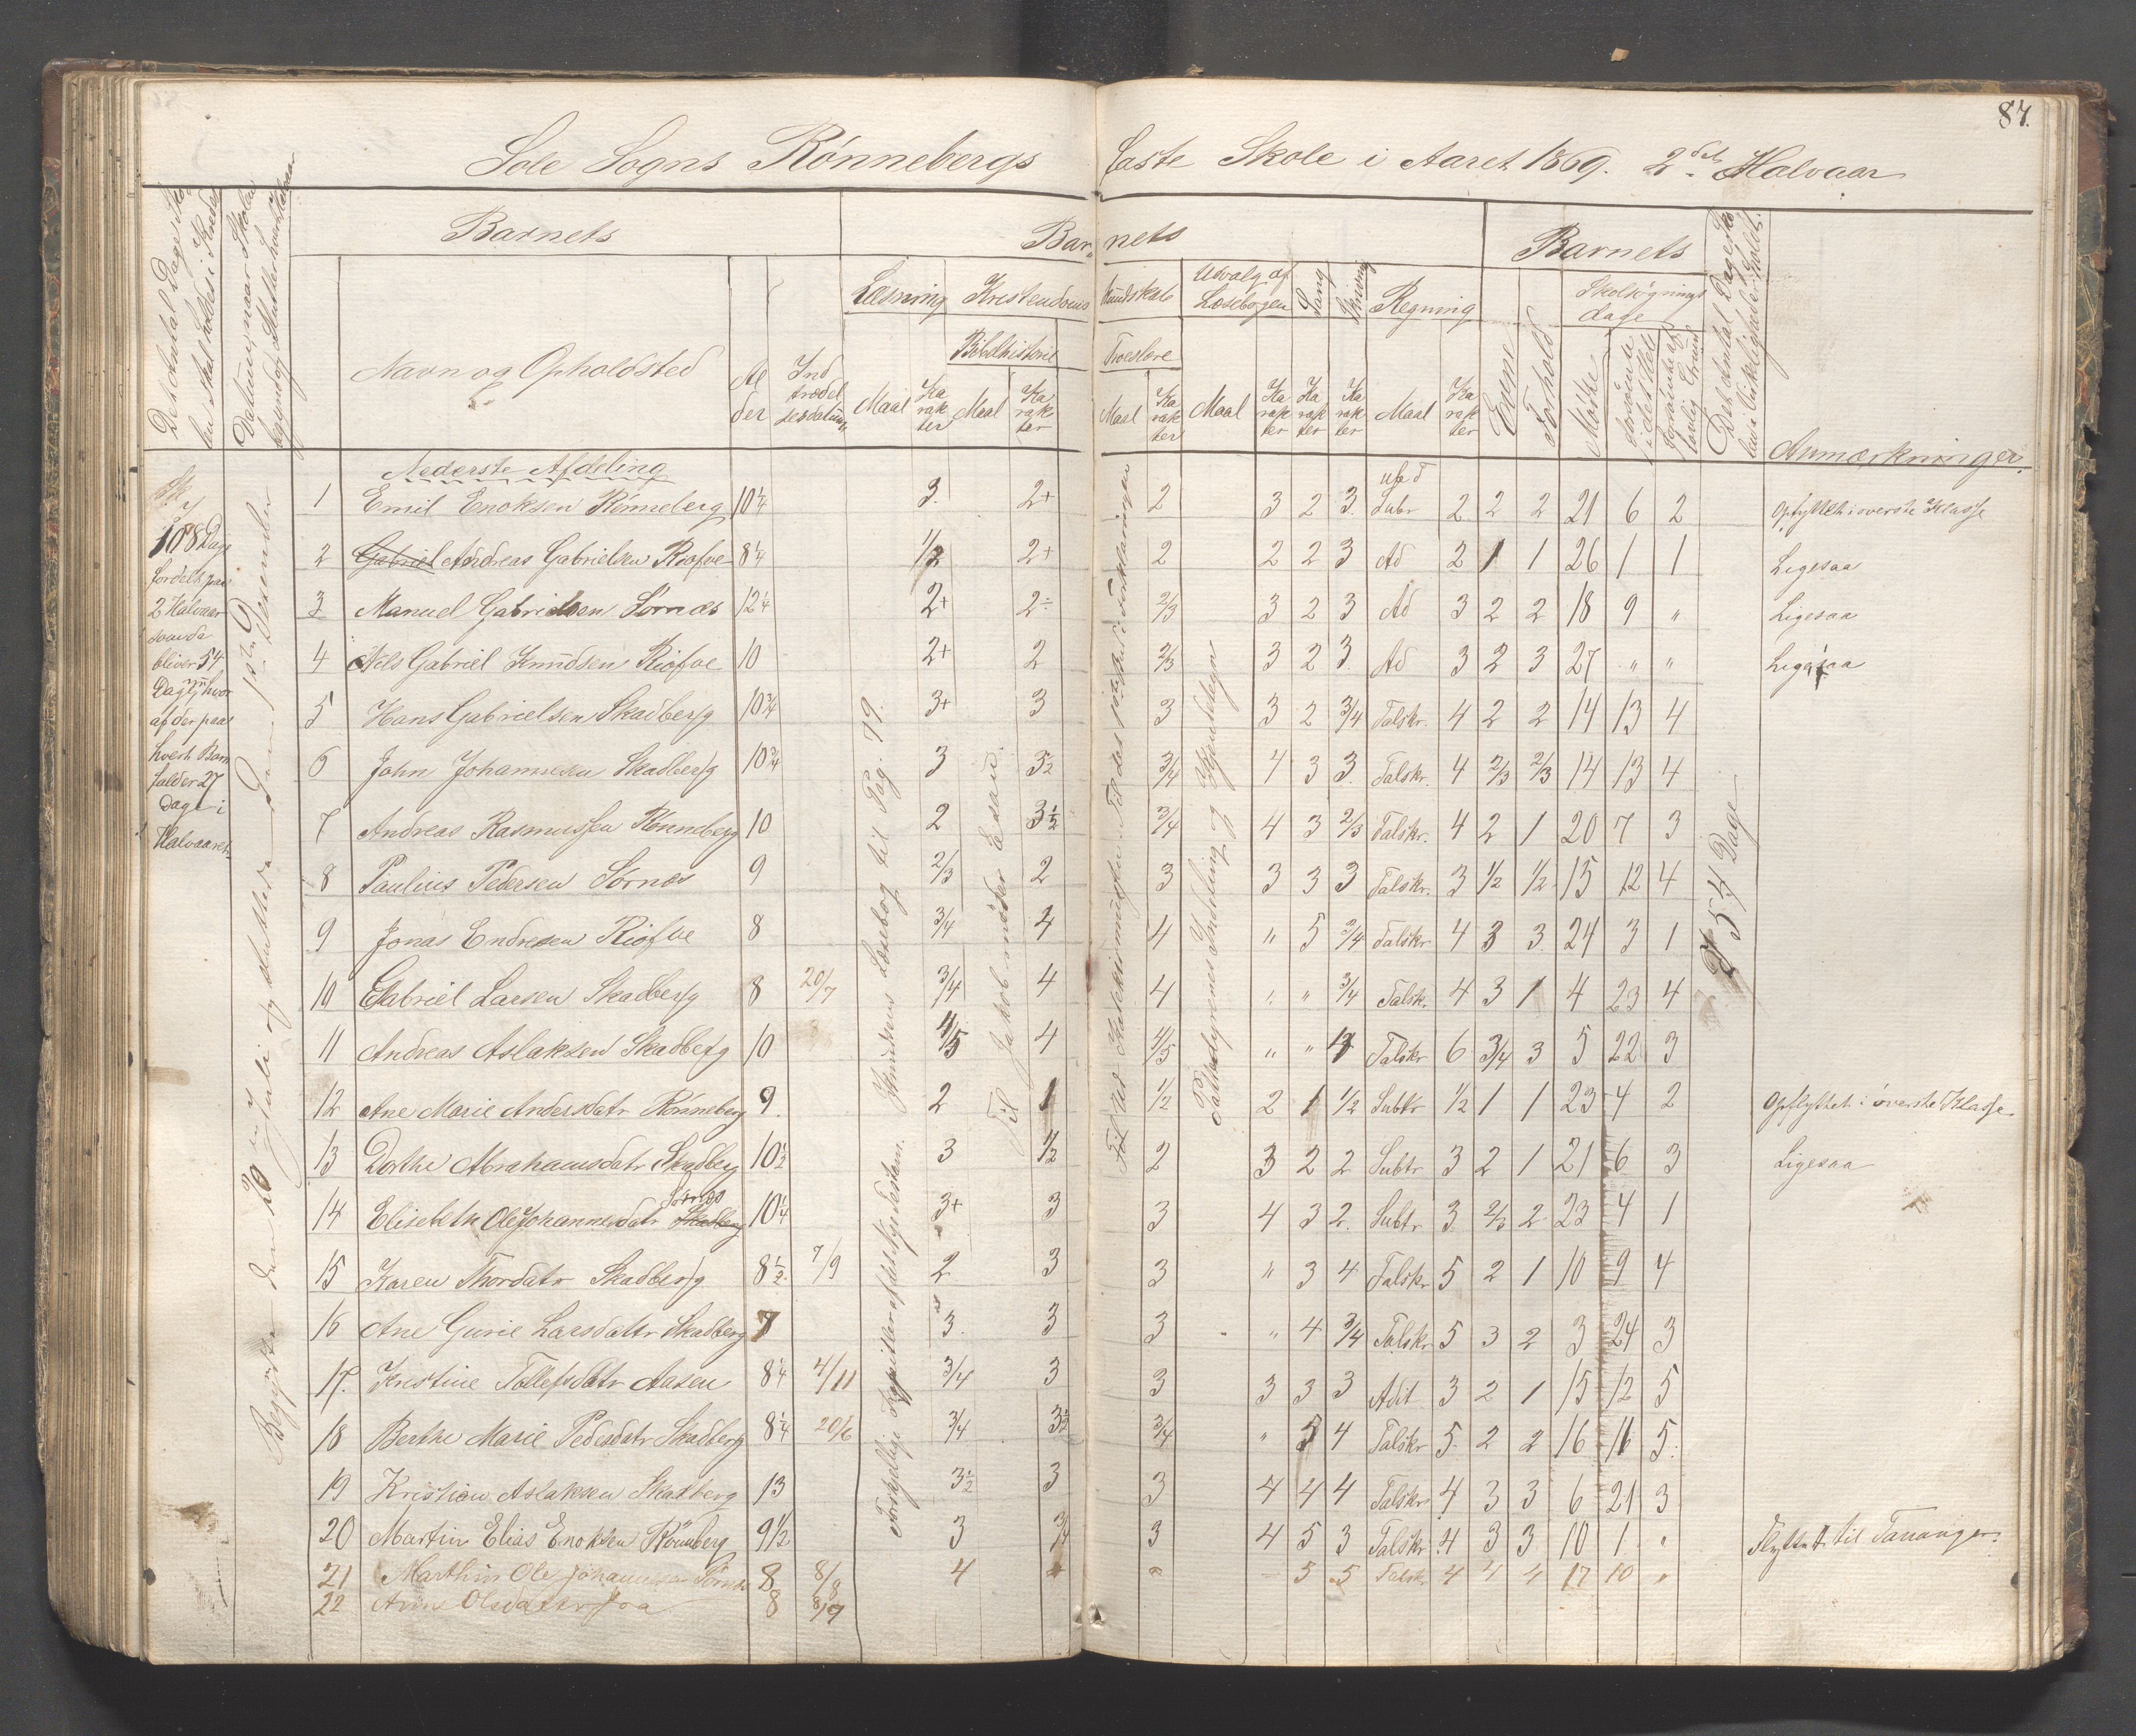 87.
Sole Sogns Rønnebergs faste Skole i Aaret 1869. 2det Halvaar
Det Antal Dage Skolen skal holdes i Kredsen
Datum, naar Skolen begyndes, slutter hvert Halvaar
Barnets
Barnets
Barnets
Det Antal Dage Skolen i Virkeligheden er holdt.
Læsning Kristendoms Kundskab Udvalg af Læsebogen Sang Skrivning Regning
Skolsøgnings dage
Bibelhistorie Troeslære
Navn og Opholdsted Alder Indtrædelsesdatum Maal Karakter Maal Karakter Maal Karakter Maal Karakter Karakter Karakter Maal Karakter Evne Forhold Mødte forsømte i det Hele forsømte af lovlig Grund Anmærkninger.
Nederste Afdeling
108 Dage
fordelt paa
2 Halvaar
som da
bliver 54
Dage, hvor
af der paa
hvert Barn
falder 27
Dage i
Halvaaret.
Begyndte den 20en Juli og sluttede den 21de December
Forskjellige Kapitler af det Nye Testam. Knudsens Læsebog til Pag. 79.
Til Jakob møder Esau.
Pattedyrenes Inddeling og Kjendetegn
54 Dage
1 Emil Enoksen Rønneberg 10¼ 3. 2+ 2 3 2 3. ubd Subr 2 2 2 21 6 2 Opflyttet i øverste Klasse
2 Gabriel Andreas Gabrielsen Risfoe 8¼ 1/2 2+ 2 2 2 3 Ad 2 1 1 26 1 1 Ligesaa
3 Manuel Gabrielsen Sørnæs 12¼ 2+ 2÷ 2/3 3 2 3 Ad 3 2 2 18 9 " Ligesaa
4 Nils Gabriel Knudsen Risfoe 10 2+ 2 2/3 3 2 3. Ad 3 2 3 27 " " Ligesaa
5 Hans Gabrielsen Skadberg 10¾ 3+ 3 3 3 2 3/4 Talskr. 4 2 2 14 13 4
6 John Johannesen Skadberg 10¾ 3 3½ 3/4 4 3 3. Talskr. 4 2/3 2/3 14 13 4
7 Andreas Rasmussen Rønneberg 10 2 3½ 3/4 4 3 2/3 Talskr. 4 2 1 20 7 3
8 Paulius Pedersen Sørnæs 9 2/3 2 3 3 3 3 Talskr. 3 1/2 1/2 15 12 4
9 Jonas Endresen Risfoe 8 3/4 4 4 " 5 3/4 Talskr 4 3 3. 24 3 1
10 Gabriel Larsen Skadberg 8 20/7 3/4 4 4 " " 3/4 Talsk. 4 3 1 4 23 4
11 Andreas Aslaksen Skadberg 10 4/5 4 4/5 " " 4 Talskr 6 3/4 3 5 22 3
12 Ane Marie Andersdatr Rønneberg 9. 2 1 1/2 2 1 1/2 Subtr 1/2 1 1 23 4 2 Opflyttet i øverste Klasse
13 Dorthe Abrahamsdatr Skadberg 10½ 3 1/2 2 3 2 2 Subtr 3 2 1 21 6 3 Ligesaa
14 Elisebeth Ole Johannesdatr Skadberg Sørnæs 10¼ 3+ 3 3 4 3 2. Subtr 3 2/3 2 23 4 1
15 Karen Thordatr Skadberg 8½ 7/9 2 3 3 " 3 4 Talskr 5 2 1 10 9 4
16 Ane Gurie Larsdattr Skadberg 7 3. 3 3 " 4 3/4 Talskr 5 3 2 3 24 3
17. Kristine Tollefsdatr Aasen 8¼ 4/11 3/4 3 3 3 3 3 Adit 3 2 1 15 12 5
18 Berthe Marie Pedersdatr Skadberg 8¼ 20/6 3/4 3½ 3/4 " 5 4 Talskr 5. 2 2 16 11 5
19 Kristian Aslaksen Skadberg 13 3½ 3 3 4 4 4 Talskr 4 3 3 6 21 3
20 Martin Elias Enoksen Rønneberg 9½ 3 3/4 3 4 5 3 Talskr 4 3 3 10 1 " Flyttet til Tananger.
21 Marthin Ole Johannesen Sørnæs 8 8/8 4 5 5 Talskr 4 4 4 17 10 "
22 Ane Olsdatter Joa 8 8/9